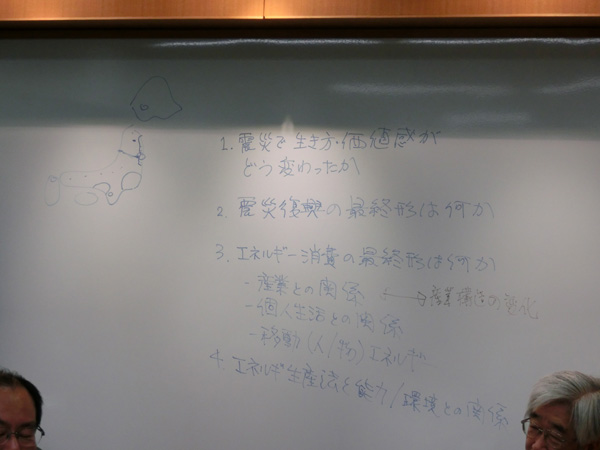 1. 震災で生き方・価値感が
どう変わったか
2. 震災復興の最終形は何か
3. エネルギー消費の最終形は何か
- 産業との関係 ←→ 産業構造の変化
- 個人生活との関係
- 移動(人/物)エネルギ
4. エネルギ生産法と能力/環境との関係